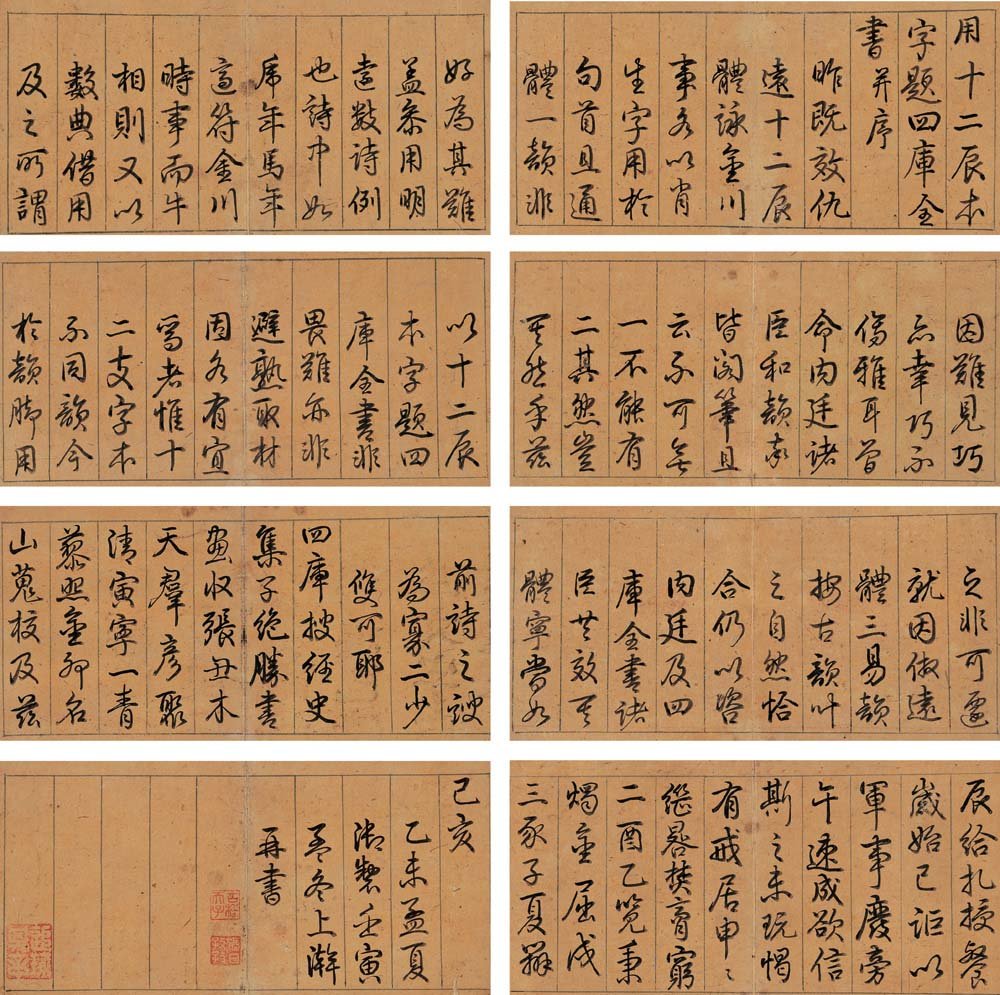 用十二辰本
字題四庫全
書并序
昨既效仇
遠十二辰
體詠金川
事各以肖
生字用於
句首且通
體一韻非
好為其難
蓋參用明
遠數詩例
也詩中如
虎年馬年
適符金川
時事而牛
相則又以
數典借用
及之所謂
因難見巧
亦幸巧不
傷雅耳曾
命內廷諸
臣和韻率
皆閣筆且
云不可無
一不能有
二其然豈
其然乎茲
以十二辰
本字題四
庫全書非
畏難亦非
避熟取材
固各有宜
寫者惟十
二支字本
不同韻今
於韻腳用
之非可遷
就因倣遠
體三易韻
按古韻叶
之自然恰
合仍以咨
內廷及四
庫全書諸
臣共效其
體寧嘗如
前詩之謏
為寡二少
雙可耶
四庫搜經史
集子絕勝書
畫收張丑木
天羣彥聚
清寅寧一青
藜照金卯名
山蒐校及茲
辰給札授餐
歲始巳詎以
軍事廢旁
午速成欲信
斯之未玩愒
有戒居申〻
繼晷焚膏窮
二酉乙覽秉
燭金屈戌
三豕子夏辨
己亥
乙未孟夏
御製壬寅
孟冬上澣
再書
古稀天子